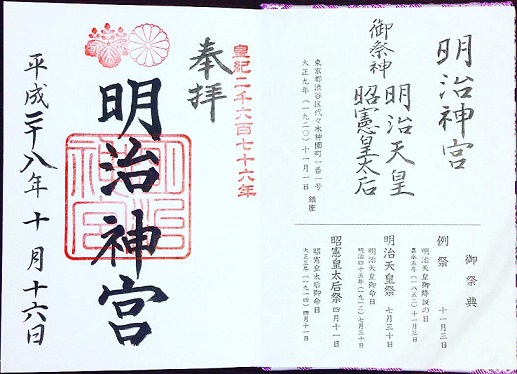 明治神宮
御祭神 明治天皇
昭憲皇太后
東京都渋谷区代々木神園町一番一号
大正九年(一九二〇)十一月一日 鎮座
御祭典
例祭 十一月三日
明治天皇御降誕の日
嘉永五年(一八五二)十一月三日
明治天皇祭 七月三十日
明治天皇御命日
明治四十五年(一九一二)七月三十日
昭憲皇太后祭 四月十一日
昭憲皇太后御命日
大正三年(一九一四)四月十一日
皇紀二千六百七十六年
奉拝
明治神宮
明治神宮
平成二十八年十月十六日